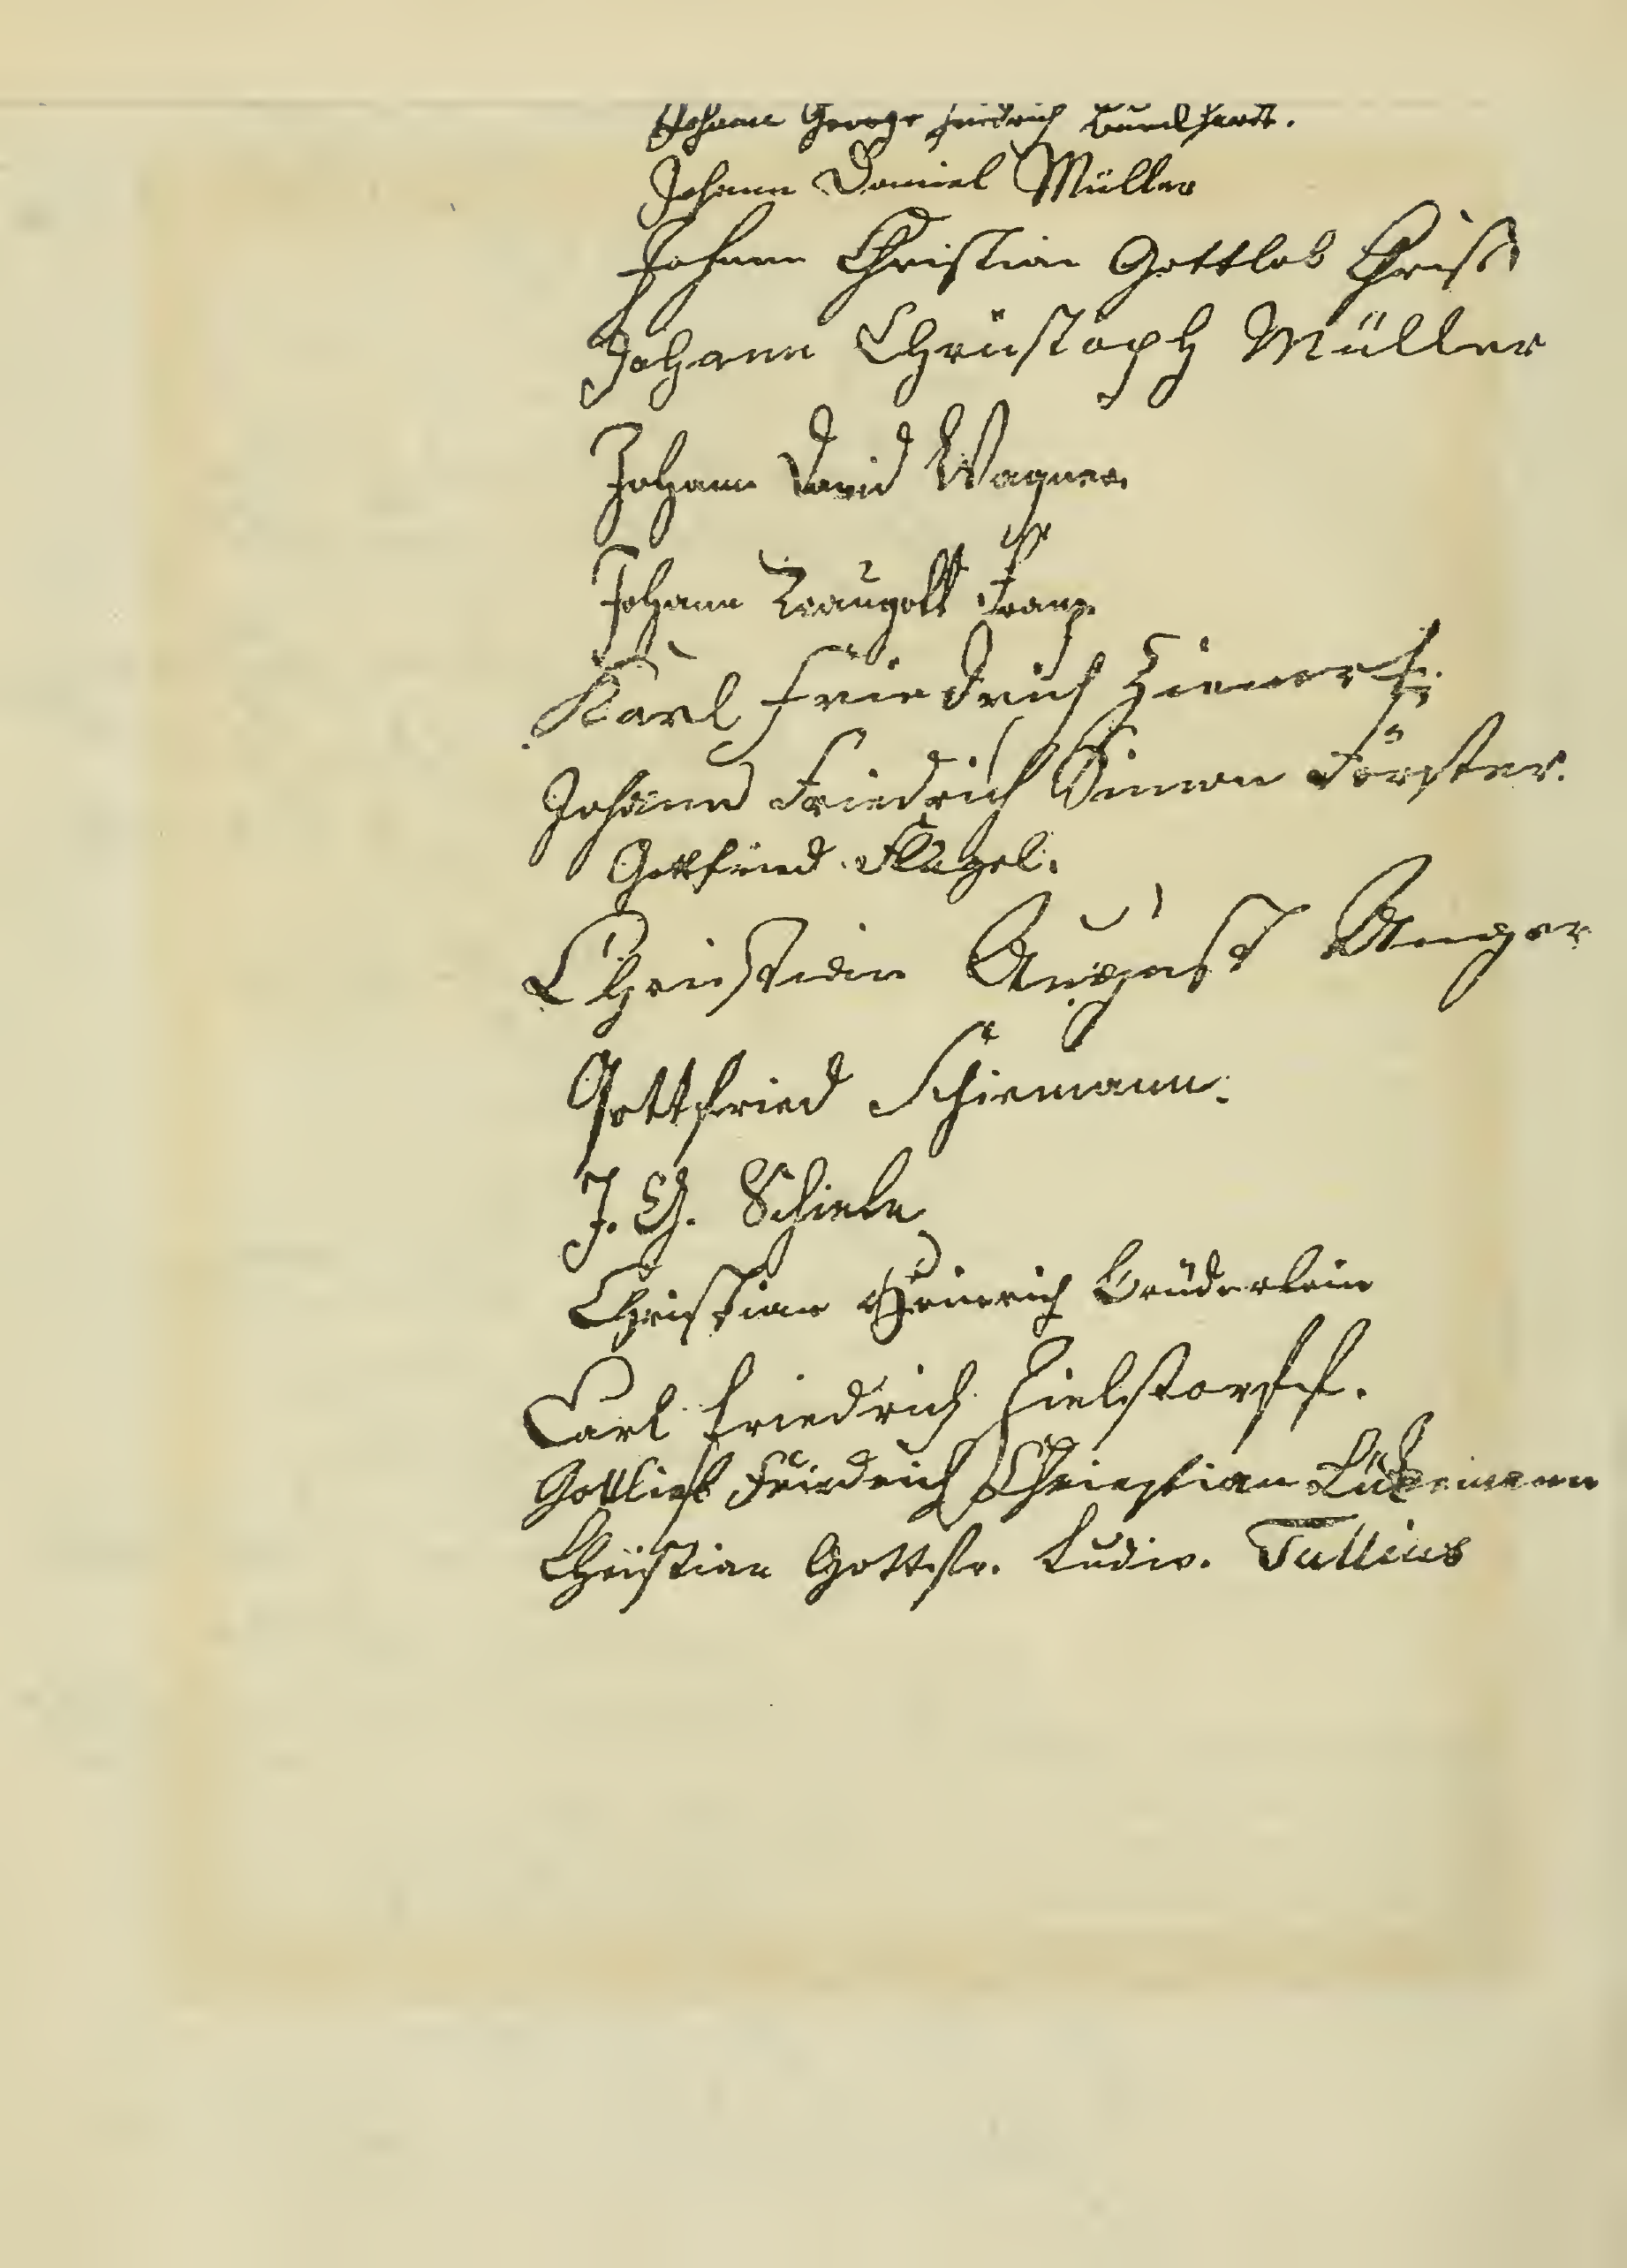 Johann George Friedrich Burckhardt.
Johann Daniel Müller
Johann Christian Gottlob Christ
Johann Christoph Müller
Johann David Wagner.
Johann Traugott Franz
Karl Friedrich
Johann Friedrich Simon Förster.
Gottfried Flügel.
Christian August Unger
Gottfried Schiemann.
J. G. Schiele
Christian Heinrich Brüderlein
Carl Friedrich Zielstorff.
Gottlieb Friedrich Christian
Christian Gottfr. Ludw. Tullius